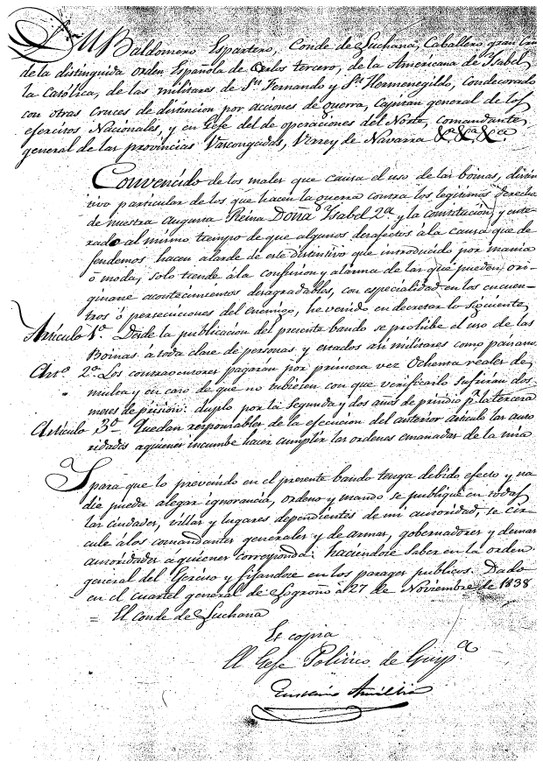 Dn Baldomero Espartero, Conde de Luchana, Caballero, gran Cruz
de la distinguida orden Española de Carlos tercero, de la Americana de Isabel
la Católica, de las militares de Sn Fernando y Sn Hermenegildo, Condecorado
con otras cruces de distincion por acciones de guerra, Capitan general de los
ejércitos Nacionales, y en Gefe del de operaciones del Norte, comandante
general de las provincias Vascongadas, Virrey de Navarra &a &a &a
Convencido de los males que causa el uso de las boinas, distin
tivo particular de los que hacen la guerra contra los legítimos derechos
de nuestra augusta Reina Doña Isabel 2a y la constitucion, y ente-
rado al mismo tiempo de que algunos desafectos á la causa que de
fendemos hacen alarde de este distintivo que introducido por mania
ó moda, solo tiende á la confusion y alarma de las que pueden ori-
ginarse acontecimientos desagradables, con especialidad en los encuen-
tros ó persecuciones del enemigo, he venido en decretar lo siguiente
Artículo 1o. Desde la publicacion del presente bando se prohibe el uso de las
Boinas a toda clase de personas y estados asi militares como paisanos.
Arto 2o. Los contraventores pagarán por primera vez Ochenta reales de
multa y en caso de que no tubiesen con que verificarlo sufriran dos
meses de prision: duplo por la segunda y dos años de presidio pr la tercera
Artículo 3o. Quedan responsables de la ejecucion del anterior articulo las auto
ridades aquienes incumbe hacer cumplir las ordenes emanadas de la mia
Y para que lo prevenido en el presente bando tenga debido efecto y na
die pueda alegar ignorancia, ordeno y mando se publique en todas
las ciudades, villas y lugares dependientes de mi autoridad, se cir
cule á los comandantes generales y de armas, gobernadores y demas
autoridades á quienes corresponda: haciendose saber en la orden
general del Egercito y fijandose en los parages publicos. Dado
en el cuartel general de Logroño á 27 de Noviembre de 1838
= El conde de Luchana
Es copia
El Gefe Politico de Guipa
Eustasio Amilibia